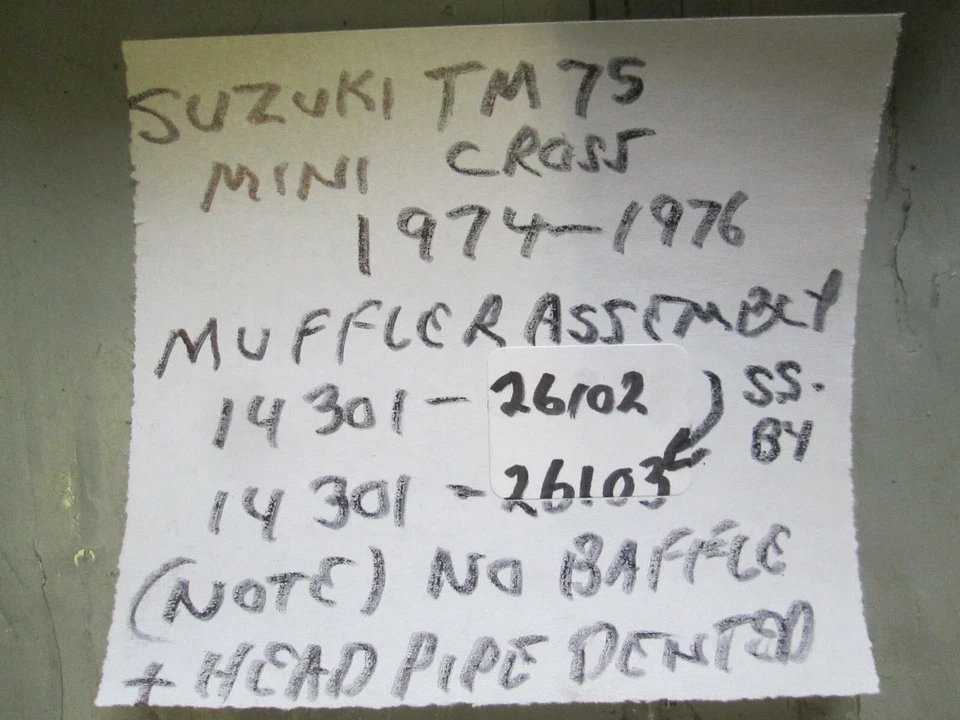 SUZUKI TM 75
MINI CROSS
1974-1976
MUFFLER ASSEMBLY
14301-26102 SS.
BY
14301-26103
(NOTE) NO BAFFLE
+ HEAD PIPE DENTED